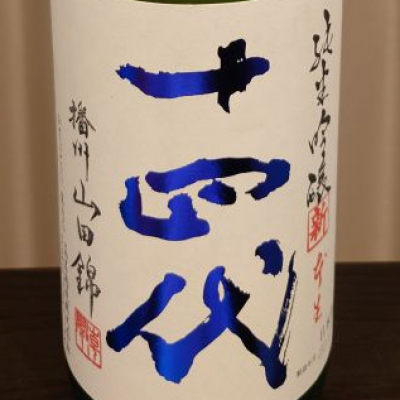 純米吟醸
新
本生
十四代
播州山田錦